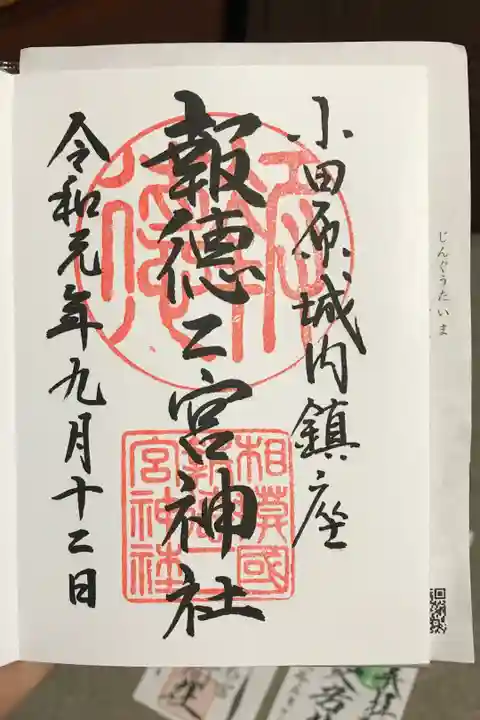 小田原城内鎮座
報徳二宮神社
令和元年九月十二日
相模國
報徳二
宮神社
じんぐうたいま